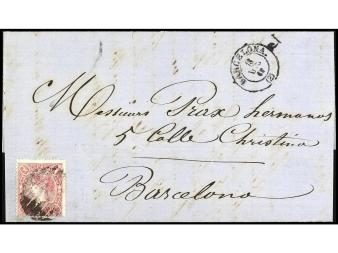 BARCELONA
Messieurs Prax hermanos
5 Calle Christina
Barcelona